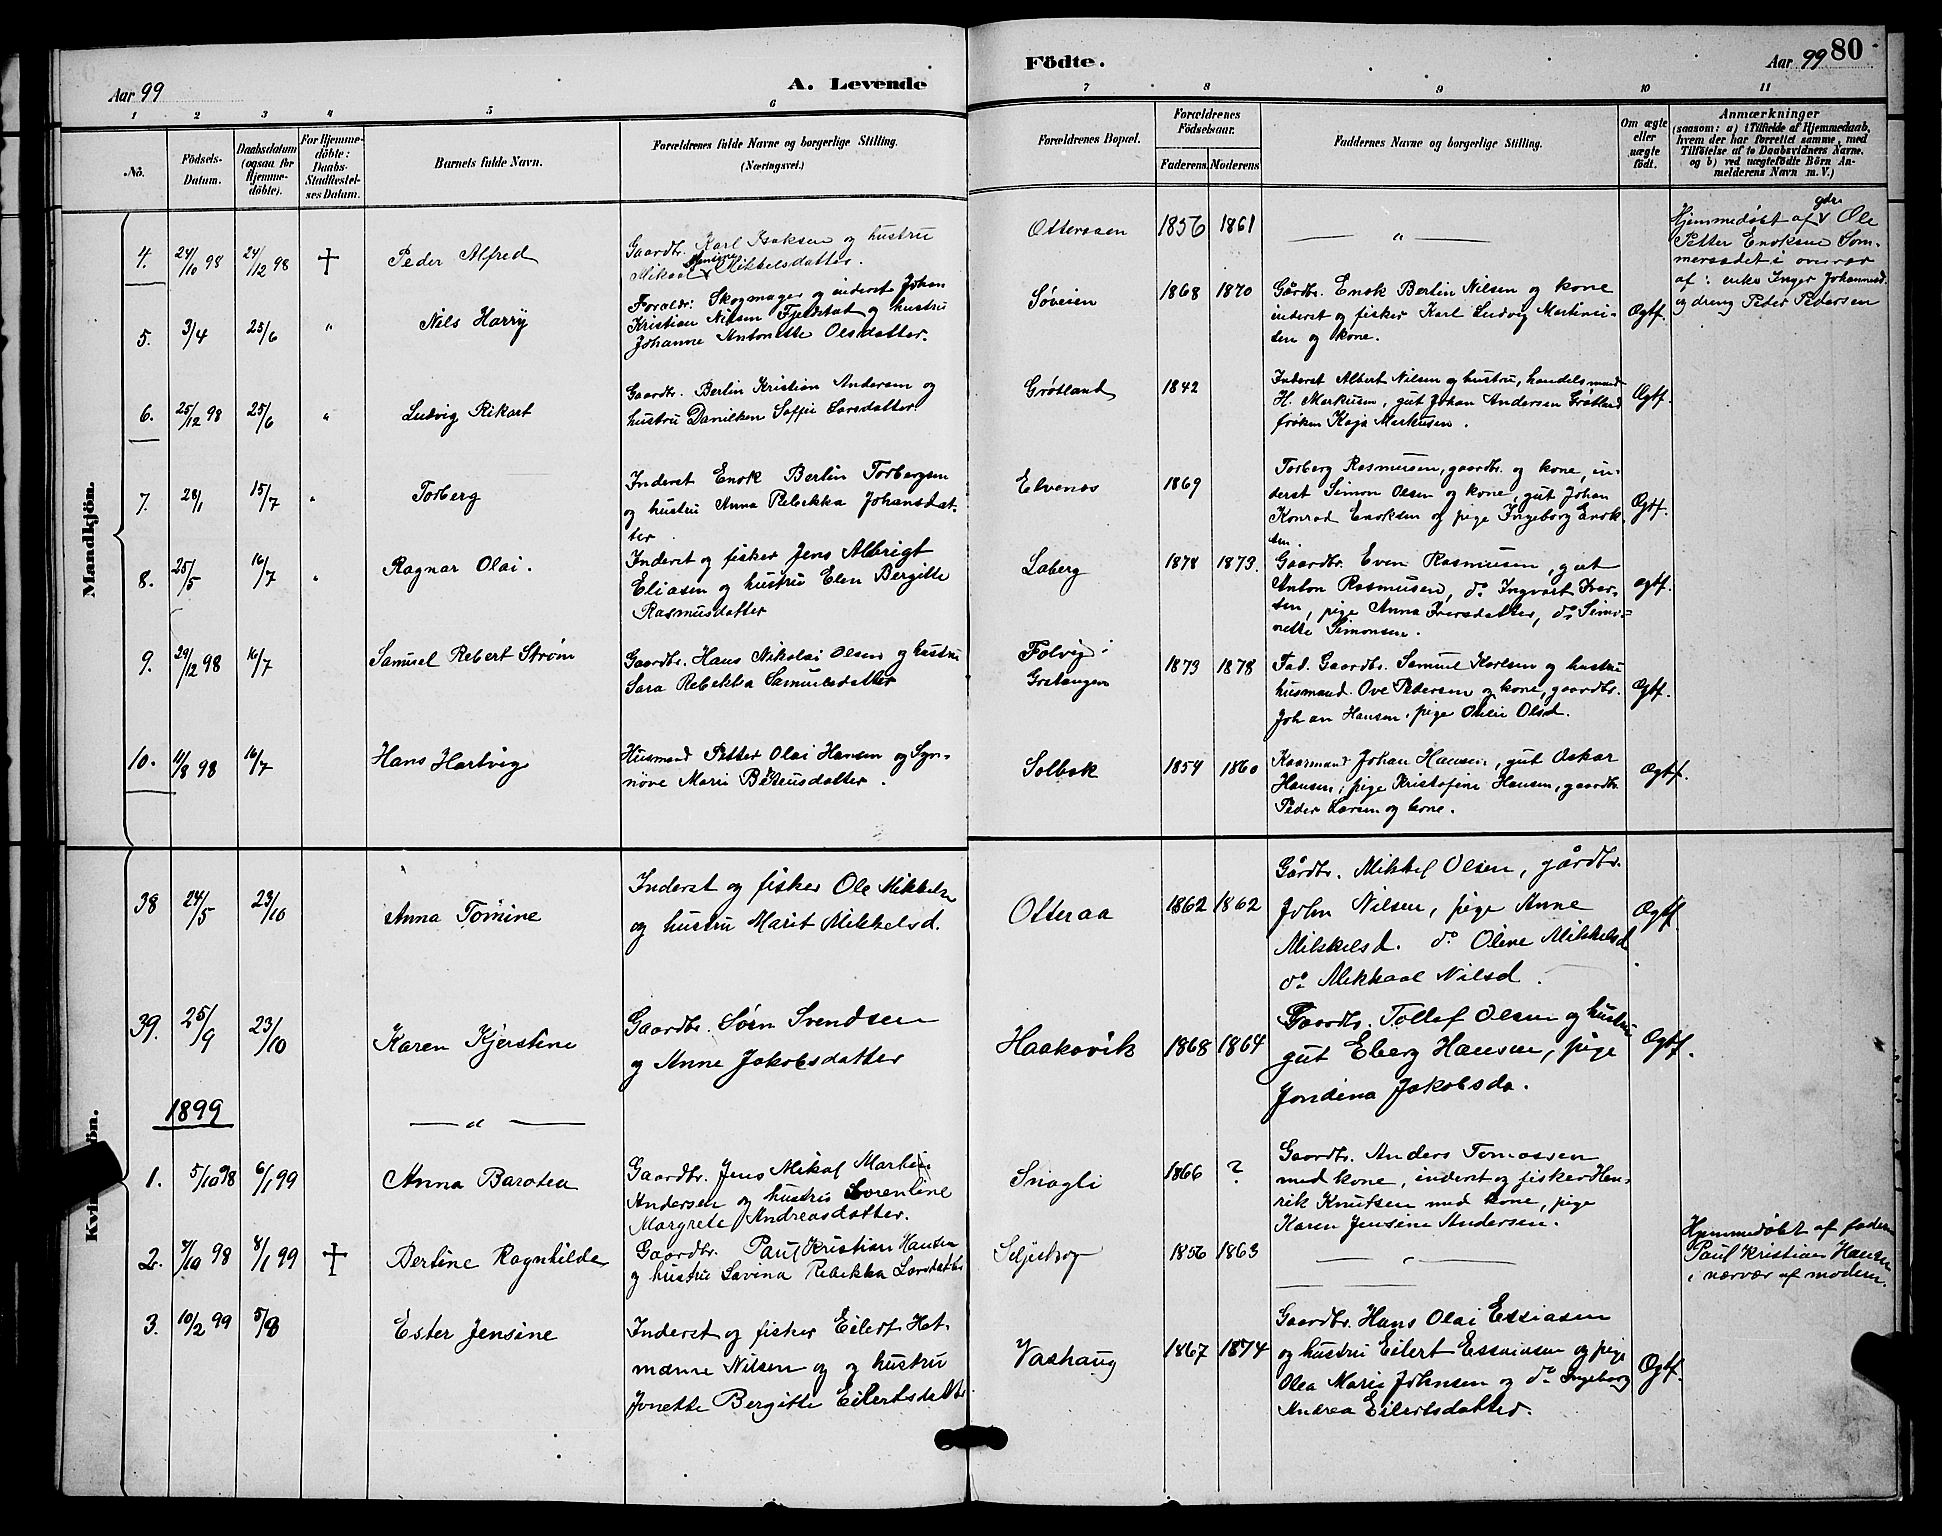 Aar 99
A. Levende
Födte.
Aar 99 80
1 2 3 4 5 6 7 8 9 10 11
No.
Födsels-
Datum.
Daabsdatum
(ogsaa för
Hjemme-
döbte).
For Hjemme-
döbte:
Daabs-
Stadfæstel-
ses Datum.
Barnets fulde Navn.
Forældrenes fulde Navne og borgerlige Stilling.
(Næringsvei.)
Forældrenes Bopæl.
Forældrenes
Födselsaar.
Faderens Moderens
Faddernes Navne og borgerlige Stilling.
Om ægte
eller
uægte
födt.
Anmærkninger
(saasom: a) i Tilfælde af Hjemmedaab,
hvem der har forrettet samme, med
Tilföielse af to Daabsvidners Navne.
og b) ved uægtefödte Börn An-
melderens Navn m. V.)
Mandkjön.
4. 24/10 98 24/12 98 † Peder Alfred
Gaardbr. Karl Isaksen og hustru
Mikkelsdatter.
Otteraaen 1856 1861 — " —
Hjemmedøbt af gdbr. Ole
Petter Enoksen Som-
mersædet i overvær
af: enke Inger Johannesd.
og dreng Peder Pedersen
5. 3/4 25/6 " Nils Harry
Foræld: Skogmager og inderst Johan
Kristian Nilsen Fjeldstat og hustru
Johanne Antonette Olsdatter.
Søveien 1868 1870
Gårdbr. Enok Bertin Nilsen og kone
inderst og fisker Karl Ludvig Martini-
sen og kone.
Ogtf.
6. 25/12 98 25/6 " Ludvig Rikart
Gaardbr. Bertin Kristian Andersen og
hustru Daniken Soffie Larsdatter
Grøtland 1842
Inderst Albert Nilsen og hustru, handelsmand
H. Markusen, gut Johan Andersen Grøtland
frøken Kaja Markusen.
Ægtf.
7. 28/1 15/7 " Torberg
Inderst Enok Bertin Torbergsen
og hustru Anna Rebekka Johansdat-
ter.
Elvenes 1869
Torberg Rasmusen, gaardbr. og kone, in-
derst Simon Olsen og kone, gut Johan
Konrad Enoksen og pige Ingeborg Enok-
sen.
Ægtf.
8. 25/5 16/7 " Ragnar Olai.
Inderst og fisker Jens Albrigt
Eliasen og hustru Elen Bergitte
Rasmusdatter
Laberg 1878 1873.
Gaardbr. Even Rasmusen, gut
Anton Rasmusen, do Ingvart Iver-
sen, pige Anna Iversdatter, do Simo-
nette Simonsen.
ægtf.
9. 29/12 98 16/7 Samuel Rebert Strøm
Gaardbr. Hans Nikolai Olsen og hustru
Sara Rebekka Samuelsdatter
Folvig i
Gratangen
1873 1878
Fad. Gaardbr. Samuel Karlsen og hustru
husmand Ove Pedersen og kone, gaardbr.
Johan Hansen, pige Olsd.
Ægtf.
10. 11/8 98 16/7 Hans Hartvig
Husmand Petter Olai Hansen og Syn-
nøve Marie
Solbak 1854 1860
Kaarmand Johan Hansen, gut Oskar
Hansen, pige Kristofine Hansen, gaardbr.
Peder Larsen og kone.
Ægtf.
Kvi ön.
38 24/5 23/10 Anna Tomine
Inderst og fisker Ole Mikkelsen
og hustru Marit Mikkelsd.
Otteraa 1862 1862
Gårdbr. Mikkel Olsen, gårdbr.
John Nilsen, pige Anne
Mikkelsd. do Oline Mikkelsd
do Mikkaal Nilsd.
Ægtf.
39. 25/9 23/10 Karen Kjerstine
Gaardbr. Sørn Svendsen
og Anne Jakobsdatter
Haakovik 1868 1864
Gaardbr. Tollef Olsen og hustru
gut Eberg Hansen, pige
Jondina Jakobsda.
Ogtf.
1899 — " —
1. 5/10 98 6/1 99 Anna Barotea
Gaardbr. Jens Mikal Martin
Andersen og hustru Sørenline
Margrete Andreasdatter.
Snogli 1866 ?
Gaardbr. Anders Tomassen
med kone, inderst og fisker Hen-
rik Knutsen med kone, pige
Karen Jensine Andersen.
2. 7/10 98 8/1 99 † Bertine Ragnhilde
Gaardbr. Paul Kristian Hansen
og hustru Lovina Rebekka Larsdatter
Seljeskog 1856 1863 — " —
Hjemmedøbt af faderen
Paul Kristian Hansen
i nærvær af moderen.
3. 10/2 99 5/8 Ester Jensine
Inderst og fisker Eilert Het-
mænne Nilsen og og hustru
Jonette Bergitte Eilertsdatter
Vashaug 1867 1874
Gaardbr. Hans Olai Essiasen
og hustru Eilert Essaiasen og pige
Olea Marie Johnsen og do Ingeborg
Andrea Eilertsdatter.
Ægtf.